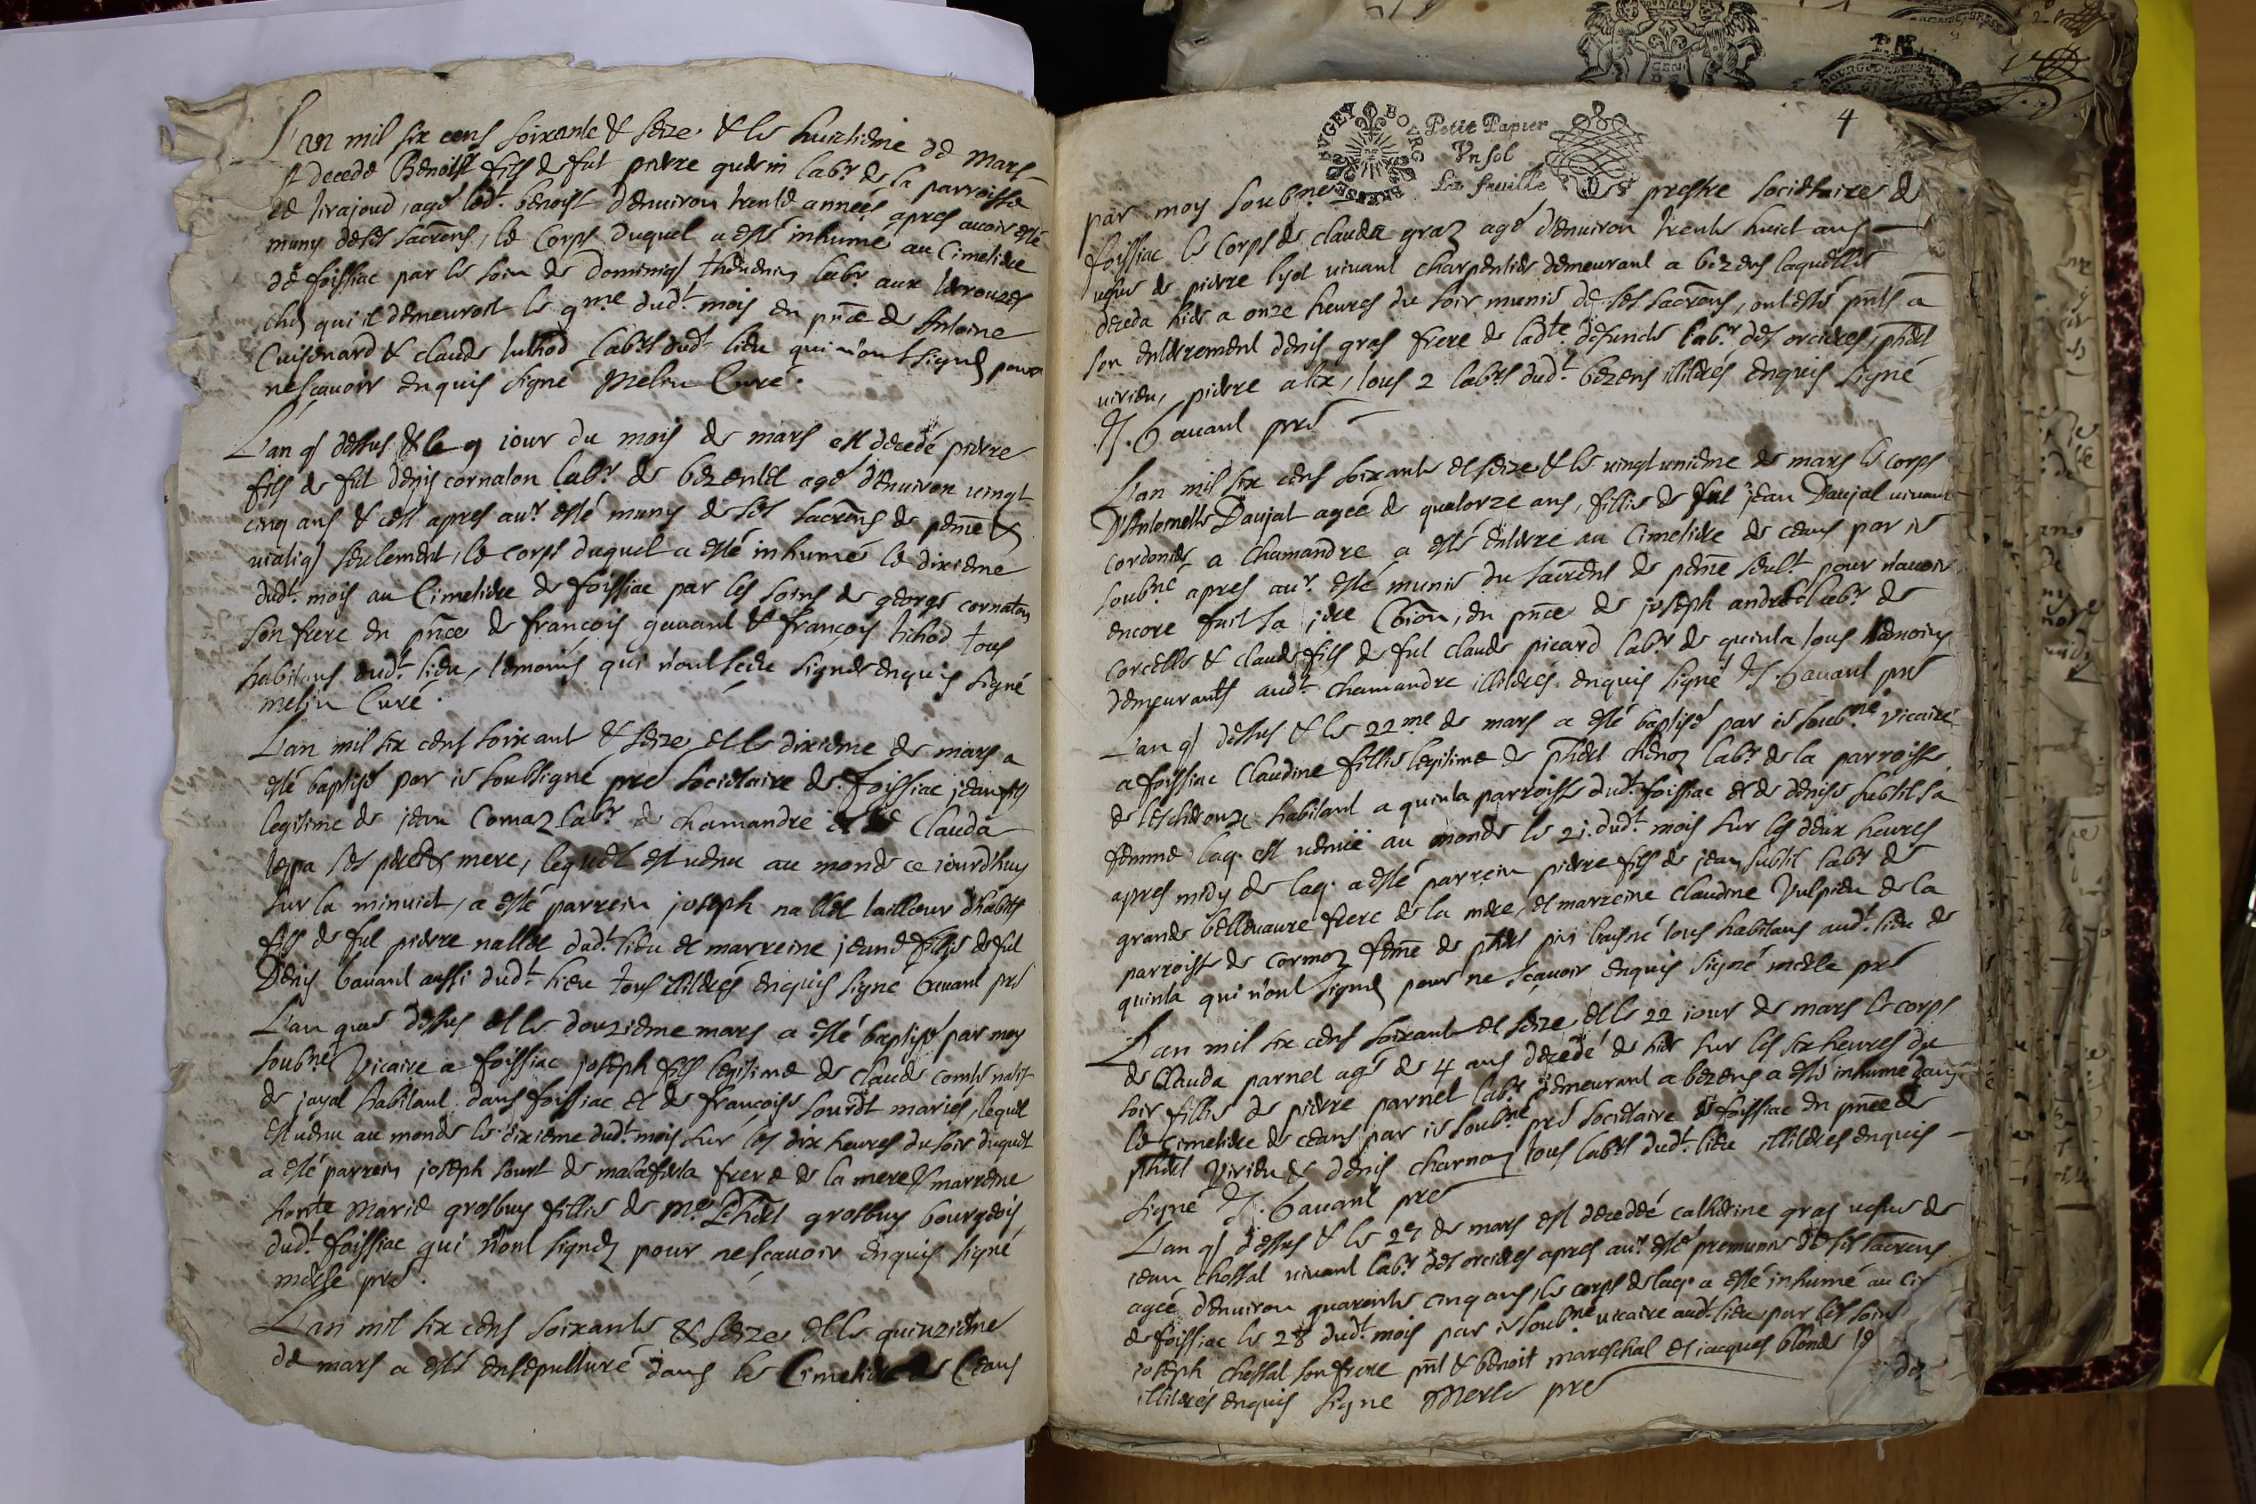 L'an mil six cens soixante & seize & le huictiéme de mars
st decede Benoist fils de fut pierre guerin labr. de la parroisse
de tirajoud, agé ledt. benoist d'enuiron trente années apres auoir esté
muny de ses sacrens, le Corps duquel a esté inhumé au Cimetiere
de foissiac par le soin de Dominiq thevenin labr. aux
chez qui il demeuroit le 9me dudt. mois en pnce de Antoine
Cuisenard & claude tuthod labrs dudt. lieu qui n'ont signez pour
ne scauoir enquis signé Melin Curé.
L'an q dessus & le 9 jour du mois de mars est decedé pierre
fils de fut denis cornaton labr. de bezentet agé d'enuiron uingt
cinq ans & cest apres aur. esté muny de ses sacrens de peñce &
uiatiq seulement, le corps duquel a esté inhumé le dixieme
dudt. mois au Cimetiere de foissiac par les soins de george cornaton
son frere en pnce de francois gauand & françois tichod tous
habitans dudt. lieu, temoins qui n'ont sceu signer enquis signé
melin Curé.
L'an mil six cens soixant & seize et le dixieme de mars a
esté baptisé par ie soubsigné pre societaire de foissiac jean fils
legitime de jean Comaz labr. de chamandre et de Clauda
ses pere & mere, lequel est uenu au monde ce jourd'huy
sur la minuict, a esté parrein joseph nallet tailleur d'habits
fils de fut pierre nallet dudt. lieu et marreine jeane fillie de fut
Denis bauant aussi dudt. lieu tous illiterés enquis signé bauant pre
L'an que dessus et le douzieme mars a esté baptisé par moy
soubné Vicaire a foissiac joseph fils legitime de claude comte natif
de jayat habitant dans foissiac et de francoise sourdt mariés, lequel
est uenu au monde le dixieme dudt. mois sur les dix heures du soir duquel
a esté parrein joseph sourt de malafreta frere de la mere & marreine
honte Marie grosbuy fillie de Me Phdt grosbuy bourgeois
dudt. foissiac qui n'ont signez pour ne scauoir enquis signé
merle pre.
L'an mil six cens soixante & seize et le quinzieme
de mars a esté ensepulturé dans le Cimetiere de Ceans
4
BVGEY BOVRG BRESSE
Petit Papier
Vn sol
La feuille
par moy soubné prestre societaire de
foissiac le corps de clauda graz agé d'enuiron trente huict ans
uefue de pierre lyot uiuant charpentier demeurant a bezens laquelle
deceda hier a onze heures du soir munie de ses sacrens, ont esté pnts a
son enterrement denis gras frere de ladte. defuncte labr. des orcieres, phdt
uirieu, pierre alix, tous 2 labrs dudt. bezens illiterés enquis signé
bauant pre
L'an mil six cens soixante et seize & le uingt unieme de mars le corps
D'Antoinette Daujat agée de quatorze ans, fillie de fut jean Daujat uiuant
cordonier a chamandre a esté enterré au Cimetiere de ceans par ie
soubné apres aur. esté munie du sacrent de peñce seult. pour n'auoir
encore fait sa 1ere Coion, en pnce de joseph andre labr. de
corcelle & claude fils de fut claude picard labr. de quinta tous temoins
demeurants audt. chamandre illiterés enquis signé bauant pre
L'an q dessus & le 22me de mars a esté baptisé par ie soubné vicaire
a foissiac Claudine fillie legitime de phdt chenoz labr. de la parroisse
de l'escheroux habitant a quinta parroisse dudt. foissiac et de denise subtil sa
femme laq. est uenüe au monde le 21. dudt. mois sur les deux heures
apres midy de laq. a esté parrein pierre fils de jean subtil labr. de
grande belleuaure frere de la mere, et marreine claudine Vulpieu de la
parroisse de cormoz feme de phdt tous habitans audt. lieu de
quinta qui n'ont signez pour ne sçauoir enquis signé merle pre
L'an mil six cens soixante et seize, et le 22 jour de mars le corps
de Clauda parnet agé de 4 ans decedé de hier sur les six heures du
soir fillie de pierre parnet labr. demeurant a bezens a esté inhumé dans
le Cimetiere de ceans par ie soubné pre societaire de foissiac en pnce de
phdt Virieu & denis charnay tous labrs dudt. lieu illiterés enquis
signé bauant pre
L'an q dessus & le 27 de mars est decedée catherine gras uefue de
jean chossat uiuant labr. des orcieres apres aur. esté premunie de ses sacrens
agée d'enuiron quarente cinq ans, le corps de laq. a esté inhumé au cim
de foissiac le 28 dudt. mois par ie soubné uicaire audt. lieu par les soins
joseph chossat son frere pnt & benoit mareschal et jacques blonde
illiterés enquis signe Merle pre